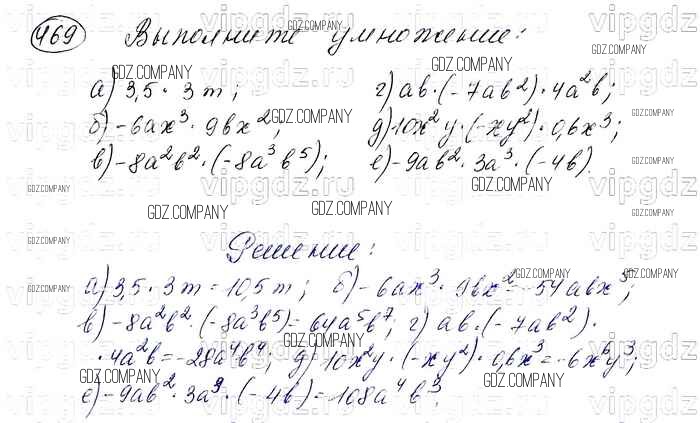 469 Выполните умножение:
а) 3,5 · 3m; г) ab · (-7ab²) · 4a²b;
б) -6ax³ · 9bx²; д) 10x²y · (-xy²) · 0,6x³;
в) -8a²b² · (-8a³b⁵); е) -9ab² · 3a³ · (-4b).
Решение:
а) 3,5 · 3m = 10,5m; б) -6ax³ · 9bx² = -54abx⁵;
в) -8a²b² · (-8a³b⁵) = 64a⁵b⁷; г) ab · (-7ab²) ·
· 4a²b = -28a⁴b⁴; д) 10x²y · (-xy²) · 0,6x³ = -6x⁶y³;
е) -9ab² · 3a³ · (-4b) = 108a⁴b³.
GDZ.COMPANY
vipgdz.ru